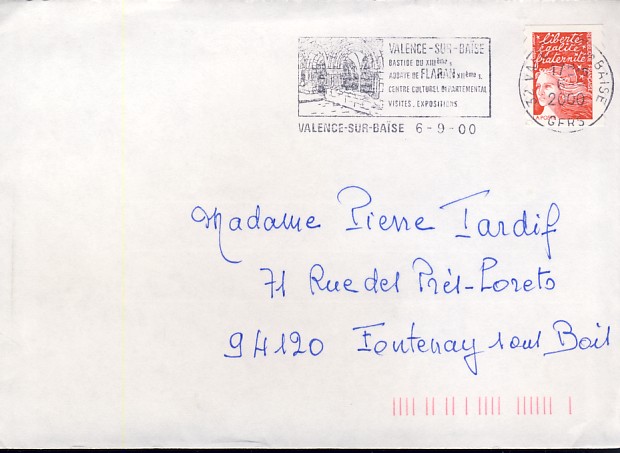 VALENCE-SUR-BAÏSE
BASTIDE DU XIIIème s
ABBAYE DE FLARAN XIIème s.
CENTRE CULTUREL DEPARTEMENTAL
VISITES, EXPOSITIONS
VALENCE-SUR-BAÏSE 6-9-00
liberté
égalité
fraternité
32 BAISE
2000
GERS
Madame Pierre Tardif
71 Rue des Prés-Lorets
94120 Fontenay sous Bois